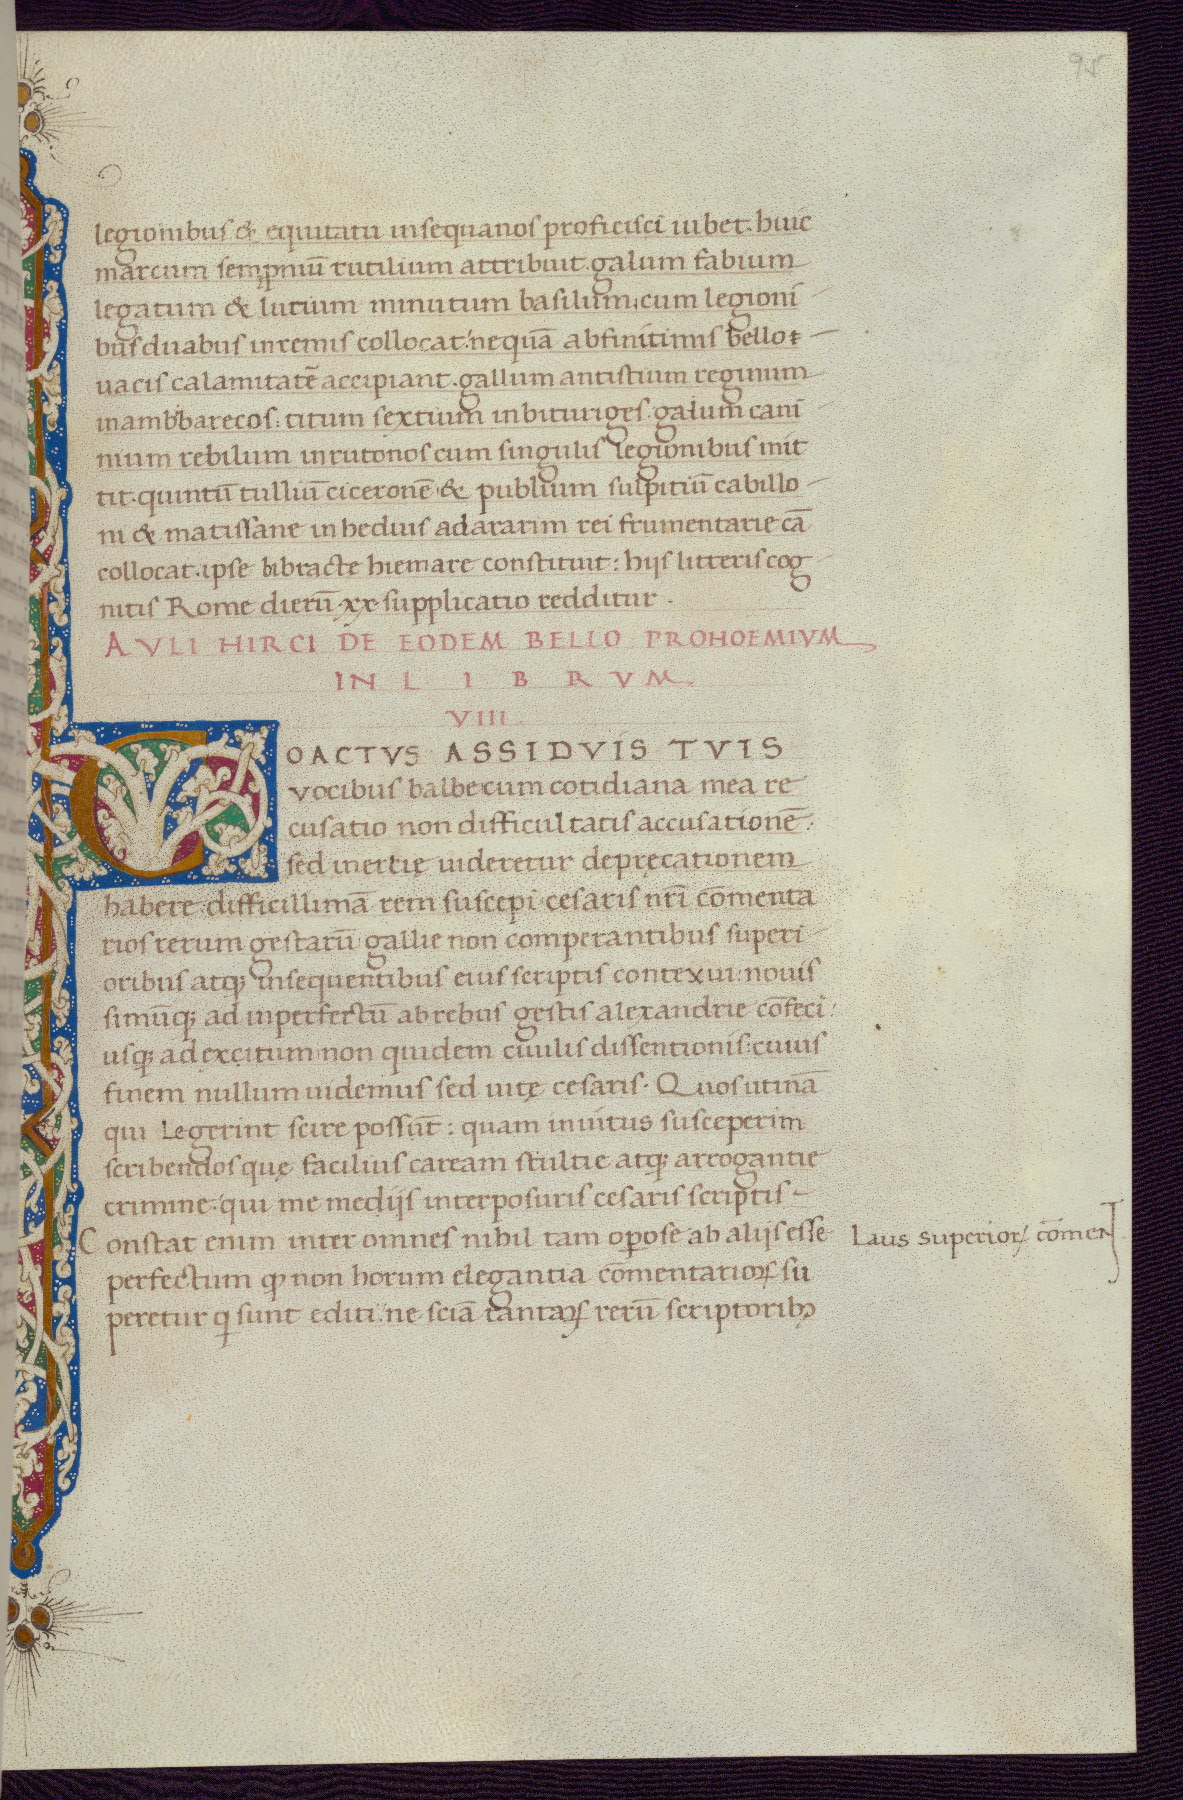 95
legionibus & equitatu insequanos proficisci iubet. huic
marcum sempniū rutilium attribuit. gaium fabium
legatum & lutium minutum basilium: cum legioni
bus duabus inremis collocat: nequā abfinitimis bello
uacis calamitatē accipiant. gallum antistium reginum
inambbarecos: titum sextium inbituriges. gaium cani
nium rebilum inrutonos cum singulis legionibus mit
tit. quintū tulliū ciceronē & publium sulpitiū cabillo
ni & matissane inheduis adararim rei frumentarie cā
collocat. ipse bibracte hiemare constituit: hijs litteris cog
nitis Rome dierū xx supplicatio redditur.
AVLI HIRCI DE EODEM BELLO PROHOEMIVM
IN LIBRVM
VIII
COACTVS ASSIDVIS TVIS
vocibus balbe cum cotidiana mea re
cusatio non difficultatis accusationē:
sed inertię uideretur deprecationem
habere difficillimā rem suscepi cesaris nrī cōmenta
rios rerum gestarū gallie non comperantibus superi
oribus atq; insequentibus eius scriptis contexui: nouis
simūq; ad inperfectū abrebus gestis alexandrie cōfeci:
usq; adexcitum non quidem ciuilis dissentionis: cuius
finem nullum uidemus sed uitę cesaris. Quos utinā
qui Legerint scire possūt: quam inuitus susceperim
scribendos quę facilius caream stultie atq; arrogantie
crimine: qui me medijs interposuris cesaris scriptis
Constat enim inter omnes nihil tam opose ab alijs esse
perfectum qȝ non horum elegantia cōmentarioꝝ su
peretur q sunt editi: ne sciā tantaꝝ rerū scriptoribꝫ
Laus superioꝝ cōmen